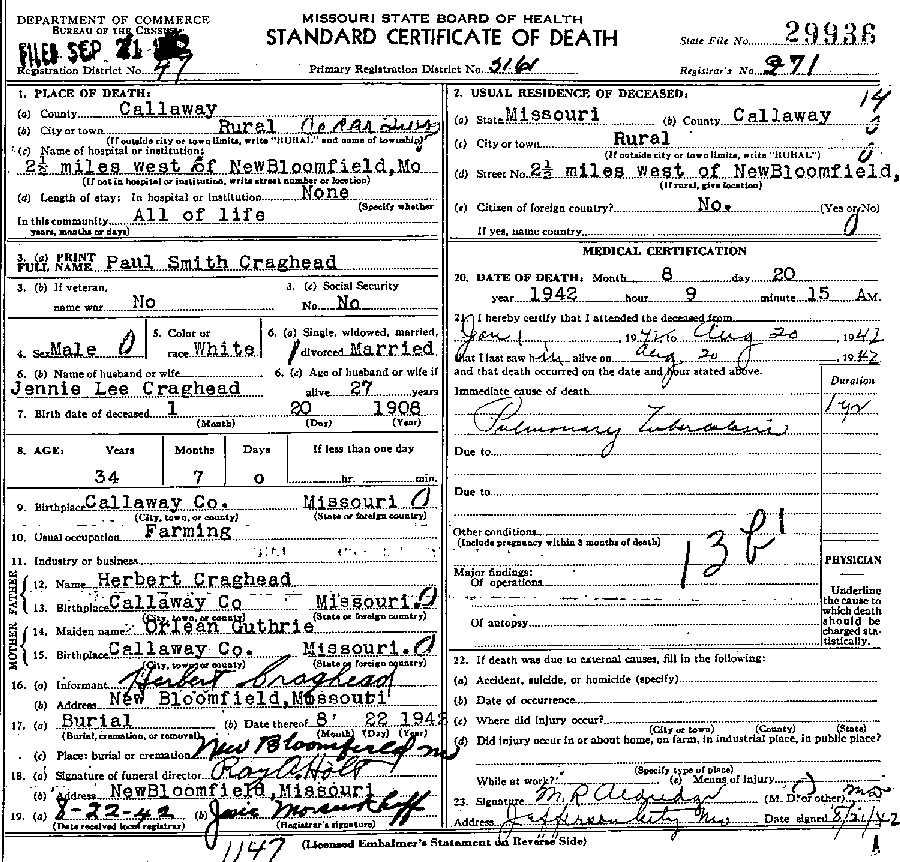 DEPARTMENT OF COMMERCE
BUREAU OF THE CENSUS
MISSOURI STATE BOARD OF HEALTH
STANDARD CERTIFICATE OF DEATH
State File No. 29936
FILED SEP 21
Registration District No. 47
Primary Registration District No.
Registrar's No. 271
1. PLACE OF DEATH:
(a) County Callaway
(b) City or town Rural
(If outside city or town limits, write "RURAL" and name of township)
(c) Name of hospital or institution:
2½ miles west of NewBloomfield,Mo
(If not in hospital or institution, write street number or location)
(d) Length of stay: In hospital or institution None
(Specify whether
In this community All of life
years, months or days)
2. USUAL RESIDENCE OF DECEASED:
(a) State Missouri (b) County Callaway 14
(c) City or town Rural 0
(If outside city or town limits, write "RURAL") 0
(d) Street No. 2½ miles west of NewBloomfield,
(If rural, give location)
(e) Citizen of foreign country? No. (Yes or No)
If yes, name country 0
3. (a) PRINT
FULL NAME Paul Smith Craghead
3. (b) If veteran,
name war No
3. (c) Social Security
No. No
4. Sex Male 0
5. Color or
race White
6. (a) Single, widowed, married,
divorced Married
6. (b) Name of husband or wife
Jennie Lee Craghead
6. (c) Age of husband or wife if
alive 27 years
7. Birth date of deceased 1 20 1908
(Month) (Day) (Year)
8. AGE: Years Months Days If less than one day
34 7 0 hr. min.
9. Birthplace Callaway Co. Missouri. 0
(City, town, or county) (State or foreign country)
10. Usual occupation Farming
11. Industry or business
FATHER
12. Name Herbert Craghead
13. Birthplace Callaway Co Missouri. 0
(City, town, or county) (State or foreign country)
MOTHER
14. Maiden name Orlean Guthrie
15. Birthplace Callaway Co. Missouri. 0
(City, town, or county) (State or foreign country)
16. (a) Informant Herbert Craghead
(b) Address New Bloomfield,Missouri
17. (a) Burial (b) Date thereof 8 22 1942
(Burial, cremation, or removal) (Month) (Day) (Year)
(c) Place: burial or cremation New Bloomfield Mo
18. (a) Signature of funeral director Ray A Holt
(b) Address NewBloomfield,Missouri
19. (a) 8-22-42 (b)
(Date received local registrar) (Registrar's signature)
MEDICAL CERTIFICATION
20. DATE OF DEATH: Month 8 day 20
year 1942 hour 9 minute 15 AM.
21. I hereby certify that I attended the deceased from
Jan 1 1942 to Aug 20 1942
that I last saw him alive on Aug 20 1942
and that death occurred on the date and hour stated above.
Duration
Immediate cause of death 1 yr
Pulmonary Tuberculosis
Due to
Due to
Other conditions
(Include pregnancy within 3 months of death)
13b1
Major findings:
Of operations
Of autopsy
PHYSICIAN
Underline
the cause to
which death
should be
charged sta-
tistically.
22. If death was due to external causes, fill in the following:
(a) Accident, suicide, or homicide (specify)
(b) Date of occurrence
(c) Where did injury occur?
(City or town) (County) (State)
(d) Did injury occur in or about home, on farm, in industrial place, in public place?
(Specify type of place)
While at work? (e) Means of Injury
23. Signature M. R. Aldridge (M. D. or other) MD
Address Jefferson City Mo Date signed 8/21/42
(Licensed Embalmer's Statement on Reverse Side)
1147